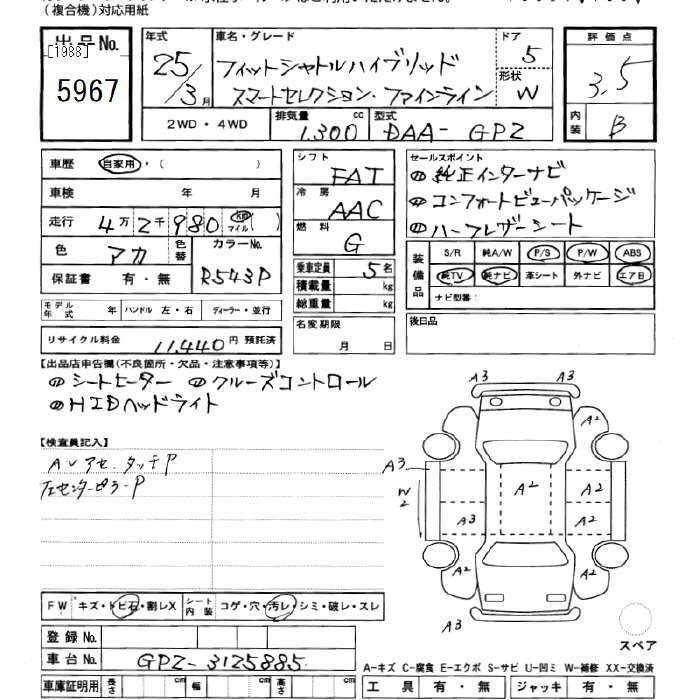 (複合機)対応用紙
出品No.
[1988]
5967
年式
25/3月
車名・グレード
フィットシャトルハイブリッド
スマートセレクション・ファインライン
ドア
5
形状
W
2WD・4WD
排気量
1.300 cc
型式
DAA-GPZ
評価点
3.5
内装
B
車歴 自家用・( )
車検 年 月
走行 4万2千980 km マイル( )
色 アカ 色替
カラーNo.
R543P
保証書 有・無
モデル年式 年 ハンドル 左・右 ディーラー・並行
リサイクル料金 11,440円 預託済
シフト
FAT
冷房
AAC
燃料
G
乗車定員 5名
積載量 kg
総重量 kg
名変期限
月 日
セールスポイント
の 純正インターナビ
の コンフォートビューパッケージ
の ハーフレザーシート
装備品
S/R 純A/W P/S P/W ABS
純TV 純ナビ 革シート 外ナビ エアB
ナビ型番:
後日品
【出品店申告欄(不良箇所・欠品・注意事項等)】
の シートヒーター の クルーズコントロール
の HIDヘッドライト
【検査員記入】
AUアセ.タッチP
左センターピラーP
A3 A3
A2
A3
W2
A2 A2
A3 A2
A2 A2
A3
スペア
FW キズ・トビ石・割レX シート内装 コゲ・穴・汚レ・シミ・破レ・スレ
登録No.
車台No. GPZ-3125885
A-キズ C-腐食 E-エクボ S-サビ U-凹ミ W-補修 XX-交換済
車庫証明用 長さ cm 幅 cm 高さ cm 工具 有・無 ジャッキ 有・無